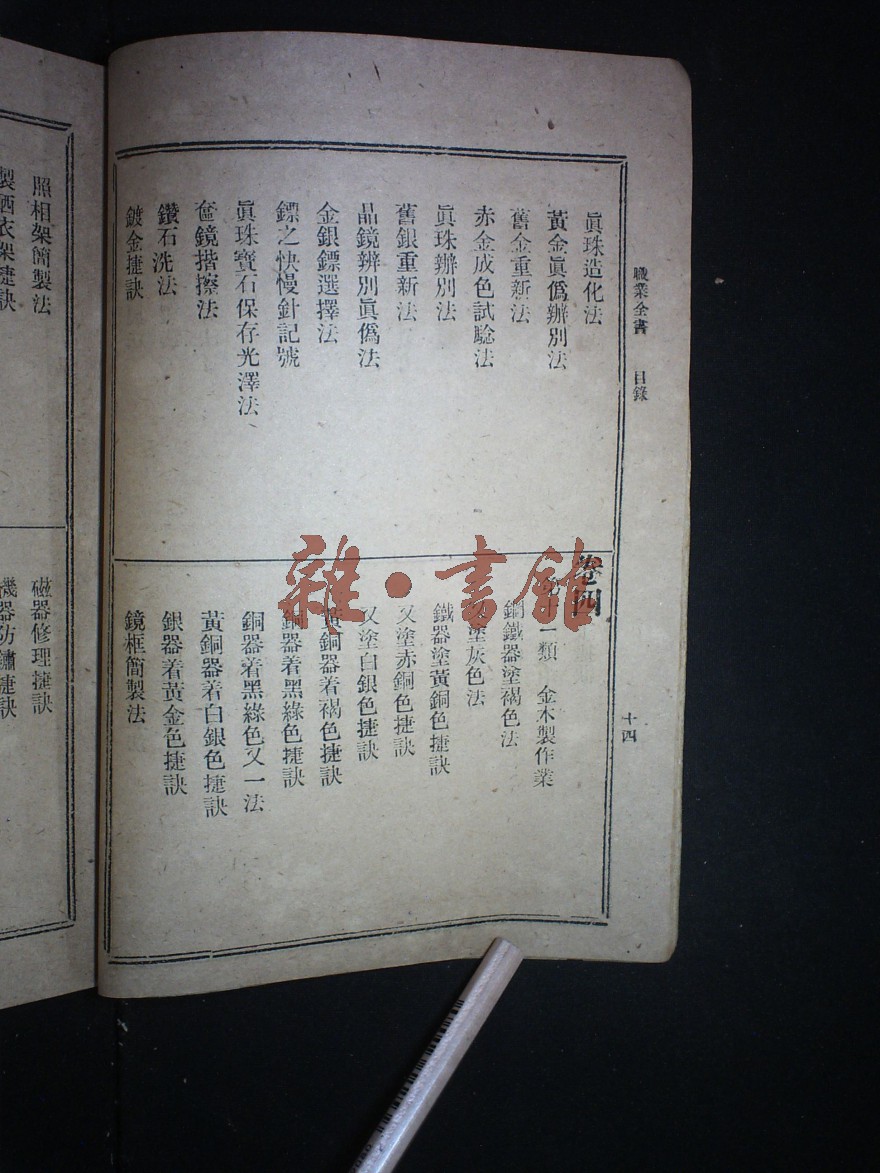 職業全書　目錄
十四
眞珠造化法
黃金眞僞辨別法
舊金重新法
赤金成色試驗法
眞珠辦別法
舊銀重新法
晶鏡辨別眞僞法
金銀鏢選擇法
鏢之快慢針記號
眞珠寶石保存光澤法
奩鏡揩擦法
鑽石洗法
鍍金捷訣
卷四
十一類　金木製作業
鋼鐵器塗褐色法
塗灰色法
鐵器塗黃銅色捷訣
又塗赤銅色捷訣
又塗白銀色捷訣
黃銅器着褐色捷訣
銅器着黑綠色捷訣
銅器着黑綠色又一法
黃銅器着白銀色捷訣
銀器着黃金色捷訣
鏡框簡製法
照相架簡製法
製晒衣架捷訣
磁器修理捷訣
機器防鏽捷訣
雜·書館